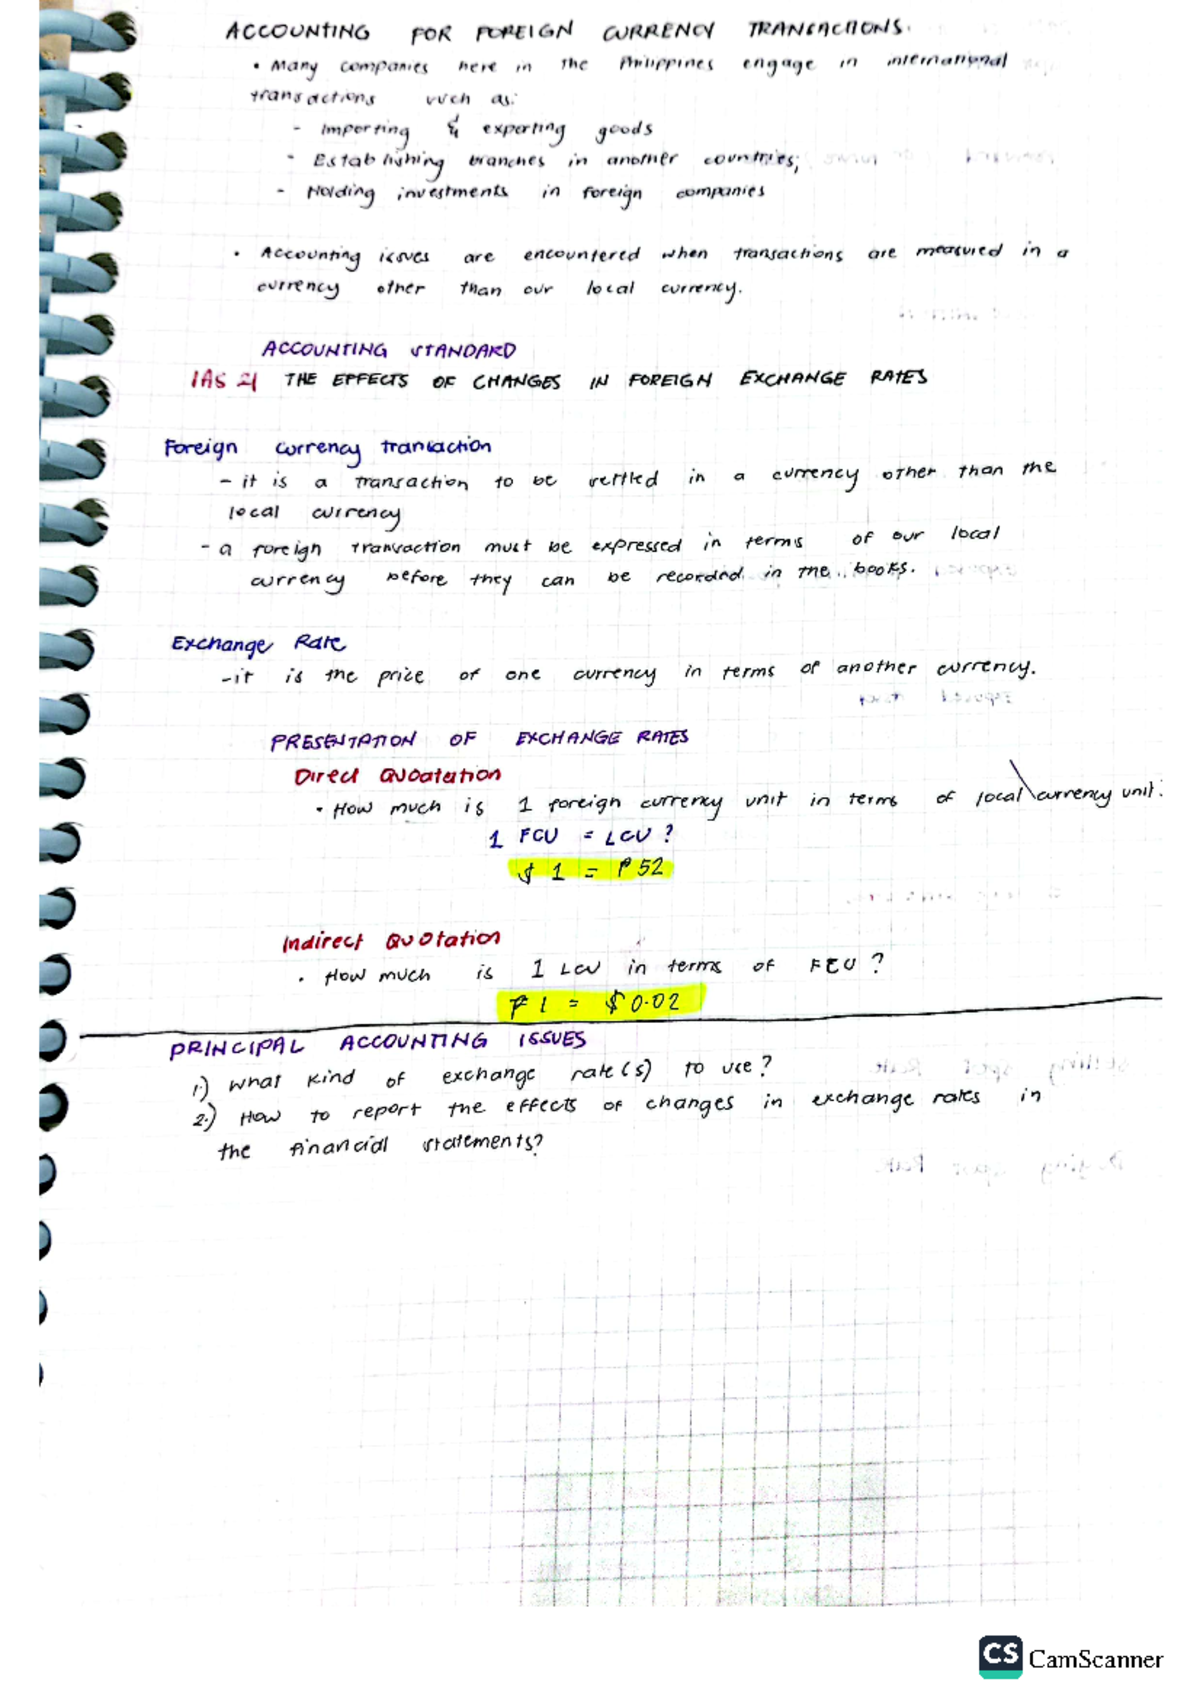 ACCOUNTING FOR FOREIGN CURRENCY TRANSACTIONS.
• Many companies here in the Philippines engage in international
transactions such as:
- Importing & exporting goods
- Establishing branches in another countries;
- Holding investments in foreign companies
• Accounting issues are encountered when transactions are measured in a
currency other than our local currency.
ACCOUNTING STANDARD
IAS 21 THE EFFECTS OF CHANGES IN FOREIGN EXCHANGE RATES
Foreign currency transaction
- it is a transaction to be settled in a currency other than the
local currency
- a foreign transaction must be expressed in terms of our local
currency before they can be recorded in the books.
Exchange Rate
- it is the price of one currency in terms of another currency.
PRESENTATION OF EXCHANGE RATES
Direct Quoatation
• How much is 1 foreign currency unit in terms of local\currency unit.
1 FCU = LCU ?
$ 1 = ₱ 52
Indirect Quotation
• How much is 1 LCU in terms of FCU ?
₱ 1 = $ 0.02
PRINCIPAL ACCOUNTING ISSUES
1.) What kind of exchange rate(s) to use?
2.) How to report the effects of changes in exchange rates in
the financial statements?
CS CamScanner